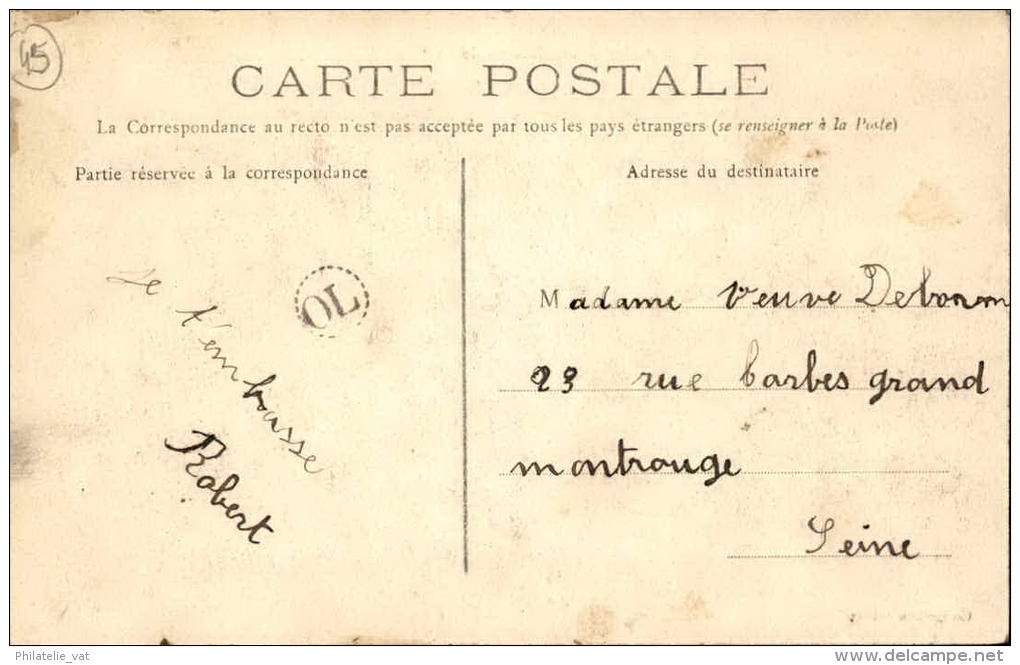 45
CARTE POSTALE
La Correspondance au recto n'est pas acceptée par tous les pays étrangers (se renseigner à la Poste)
Partie réservée à la correspondance
Adresse du destinataire
Je
t'embrasse
Robert
OL
Madame Veuve
23 rue barbes grand
montrouge
Seine
Philatelie_vat
delcampe.net